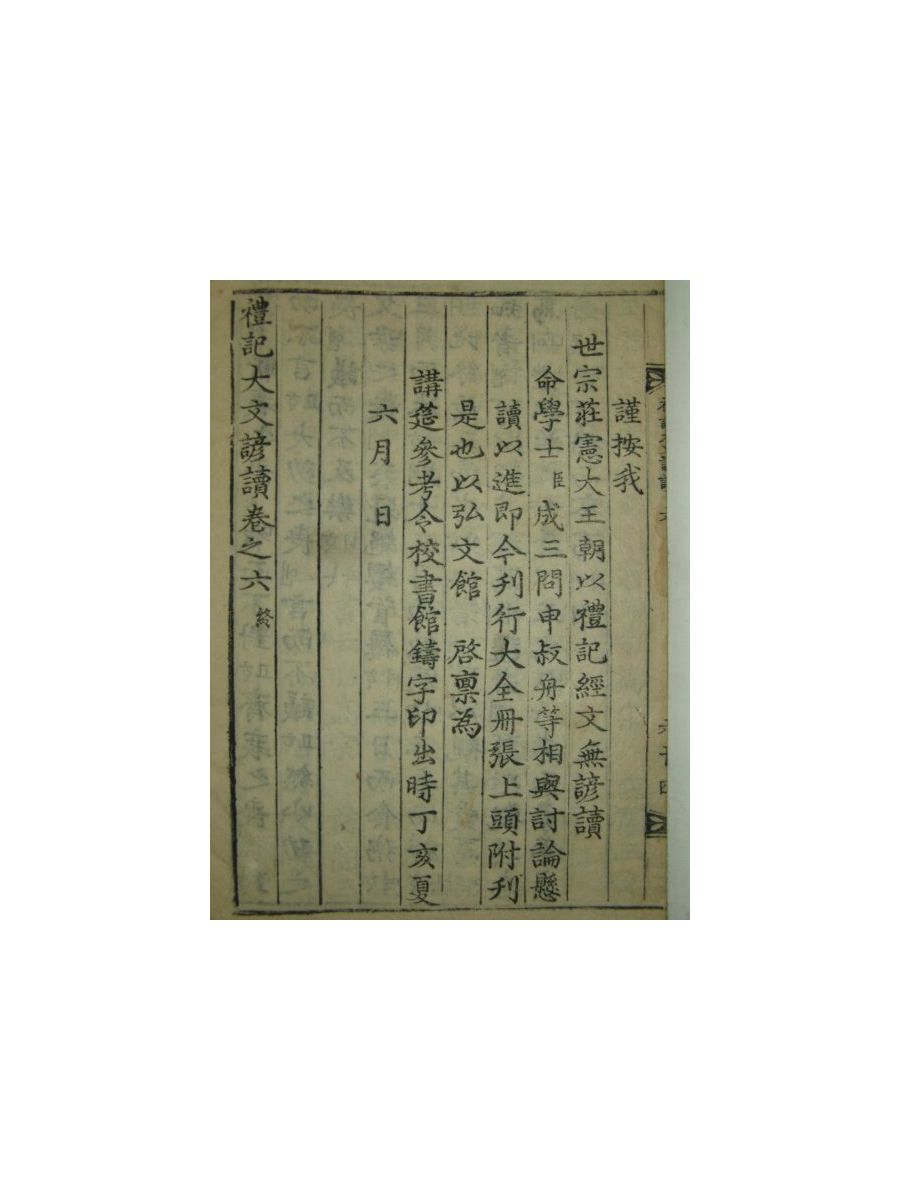 謹按我
世宗莊憲大王朝以禮記經文無諺讀
命學士臣成三問申叔舟等相與討論懸
讀以進即今刋行大全冊張上頭附刋
是也以弘文館 啓稟為
講莚參考令校書館鑄字印出時丁亥夏
六月 日
禮記大文諺讀卷之六 終